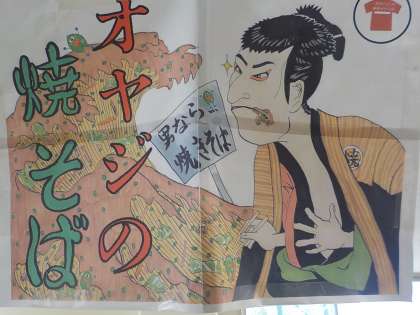 オヤジの
焼そば
男なら
焼きそば